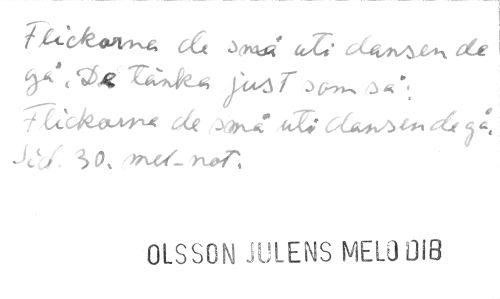 Flickorna de små uti dansen de
gå. De tänka just som så:
Flickorna de små uti dansen de gå.
Sid. 30. mel-not.
OLSSON JULENS MELODIB